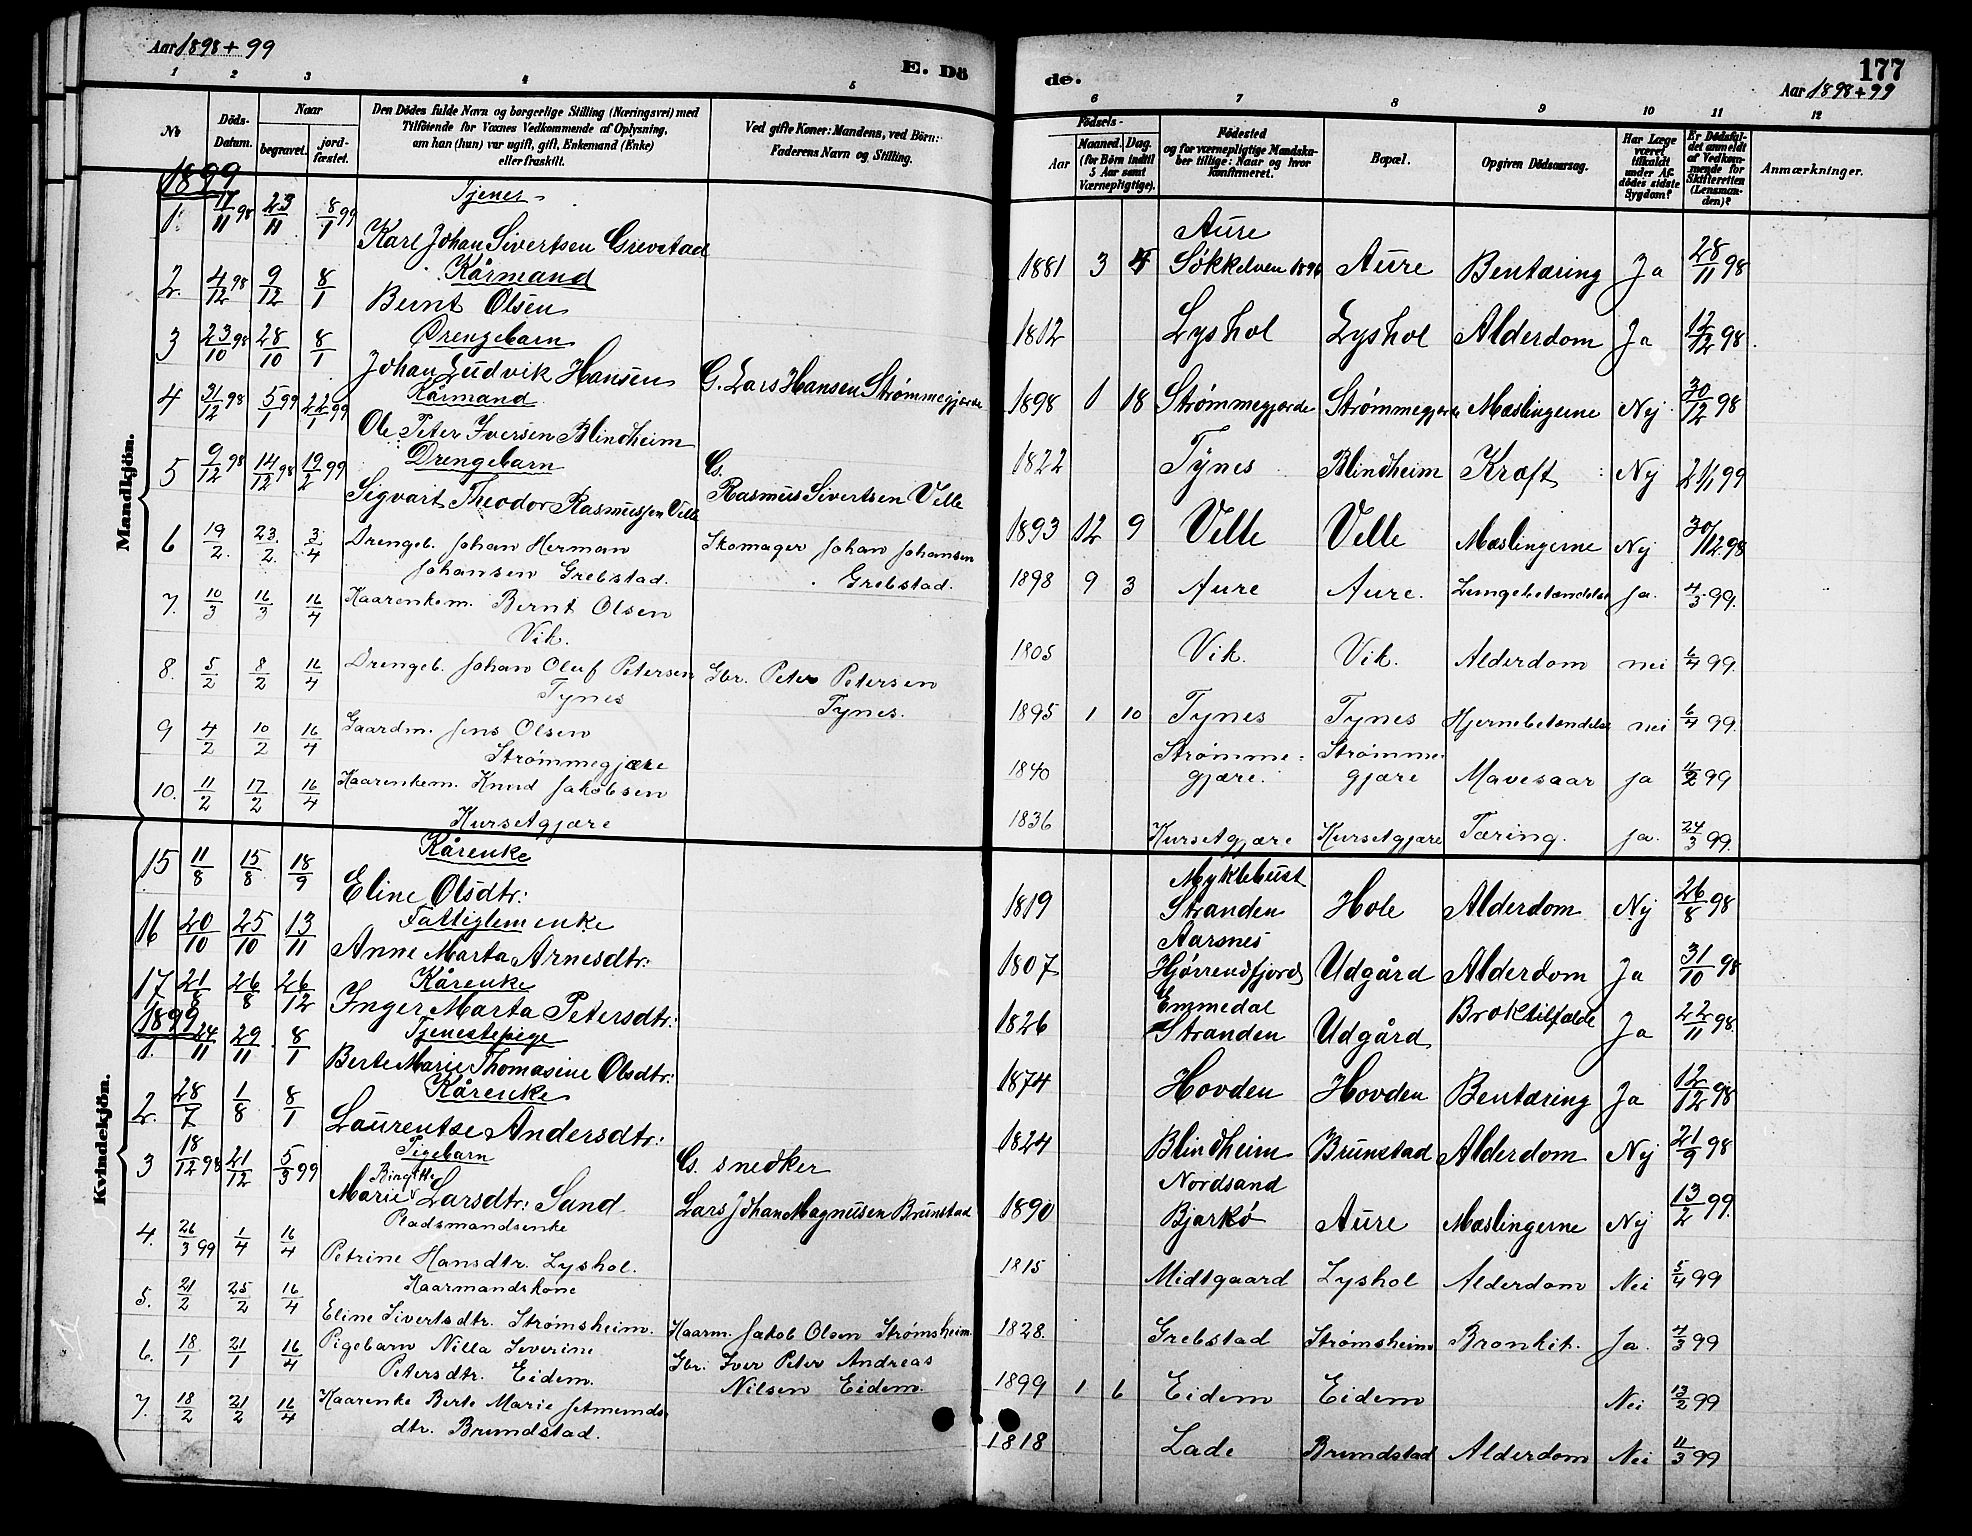 Aar 1898 + 99
E. Dö
de.
177
Aar 1898 + 99
1 2 3 4 5 6 7 8 9 10 11 12
No
Döds-Datum.
Naar
begravet.
jord-fæstet.
Den Dödes fulde Navn og borgerlige Stilling (Næringsvei) med
Tilföiende for Voxnes Vedkommende af Oplysning,
om han (hun) var ugift, gift, Enkemand (Enke)
eller fraskilt.
Ved gifte Koner: Mandens, ved Börn:
Faderens Navn og Stilling.
Födsels-
Aar
Maaned. Dag.
(for Börn indtil
5 Aar samt
Værnepligtige).
Födested
og for værnepligtige Mandska-
ber tillige: Naar og hvor
konfirmeret.
Bopæl.
Opgiven Dödsaarsag.
Har Læge
været
tilkaldt
under Af-
dödes sidste
Sygdom?
Er Dödsfal-
det anmeldt
af Vedkom-
mende for
Skifteretten
(Lensman-
den)?
Anmærkninger.
Mandkjön.
1899
1. 17/11 98 23/11 8/1 99 Tjener
Karl Johan Sivertsen Grevstad 1881 3 4 Aure Søkkelven 1896 Aure Bentæring Ja 28/11 98
2. 4/12 98 9/12 8/1 Kårmand
Bernt Olsen 1812 Lyshol Lyshol Alderdom Ja 12/12 98.
3 23/10 98 28/10 8/1 Drengebarn
Johan Ludvik Hansen G. Lars Hansen Strømmegjærde 1898 1 18 Strømmegjærde Strømmegjærde Mæslingerne Nej 30/12 98
4 31/12 98 5/1 99 22/1 99 Kårmand
Ole Peter Iversen Blindheim 1822 Tynes Blindheim Kræft Nej 21/1 99
5 9/12 98 14/12 98 19/2 99 Drengebarn
Sigvart Theodor Rasmussen Velle G. Rasmus Sivertsen Velle 1893 12 9 Velle Velle Mæslingerne Nej 30/12 98
6 19/2. 23./2. 3/4 Drengeb. Johan Herman
Johansen Grebstad. Skomager Johan Johansen
Grebstad. 1898 9 3 Aure Aure. Lungebetændelse Ja. 4/3 99.
7. 10/3 16/3 16/4 Kaarenkem. Bernt Olsen
Vik. 1805 Vik. Vik. Alderdom nei 6/4 99.
8. 5/2 8/2 16/4 Drengeb. Johan Oluf Petersen
Tynes Gbr. Peter Petersen
Tynes. 1895 1 10 Tynes Tynes Hjernebetændelse nei 6/4 99.
9 4/2 10/2 16/4 Gaardm. Jens Olsen
Strømmegjære 1840 Strømme-
gjære. Strømme-
gjære Mavesaar ja 99
10. 11/2 17/2 16/4 Kaarenkem. Knud Jakobsen
Kursetgjære 1836 Kursetgjære Kursetgjære Tæring. ja. 24/3 99.
Kvindekjön.
15 11/8 15/8 18/9 Kårenke
Eline Olsdtr: 1819 Myklebust
Stranden Hole Alderdom Nej 26/8 98
16 20/10 25/10 13/11 Fattiglem enke
Anne Marta Arnesdtr: 1807 Aarsnes
Hjørrendfjord Udgård Alderdom Ja 31/10 98
17 21/8 26/8 26/12 Kårenke
Inger Marta Petersdtr: 1826 Emmedal
Stranden Udgård Broktilfælde Ja 22/11 98.
1899
1. 24/11 29/11 8/1 Tjenestepige
Berte Marie Thomasine Olsdtr: 1874 Hovden Hovden Bentæring Ja 12/12 98
2. 28/7 1/8 8/1 Kårenke
Laurentse Andersdtr: 1824 Blindheim Brunstad Alderdom Nej 21/9 98
3 18/12 98 21/12 5/3 99 Pigebarn
Marie Birgitte Larsdtr: Sand G. snedker
Lars Johan Magnusen Brunstad 1890 Nordsand
Bjarkø Aure Mæslingerne Nej 13/2 99.
4. 26/3 99 1/4 16/4 Radsmandsenke
Petrine Hansdtr. Lyshol. 1815 Midtgaard Lyshol Alderdom Nei 5/4 99
5. 21/2 25/2 16/4 Kaarmandskone
Eline Sivertsdtr. Strømsheim. Kaarm. Jakob Olsen Strømsheim. 1828. Grebstad Strømsheim Bronkit. Ja. 4/3 99
6. 18/1 21/1 16/4 Pigebarn Nilla Severine
Petersdtr. Eidem. Gbr. Iver Peter Andreas
Nilsen Eidem. 1899 1 6 Eidem Eidem Nei 13/2 99
7. 18/2 21/2 16/4 Kaarenke Berte Marie
dtr. Brundstad. 1818 Lade Brundstad Alderdom Nei 11/3 99